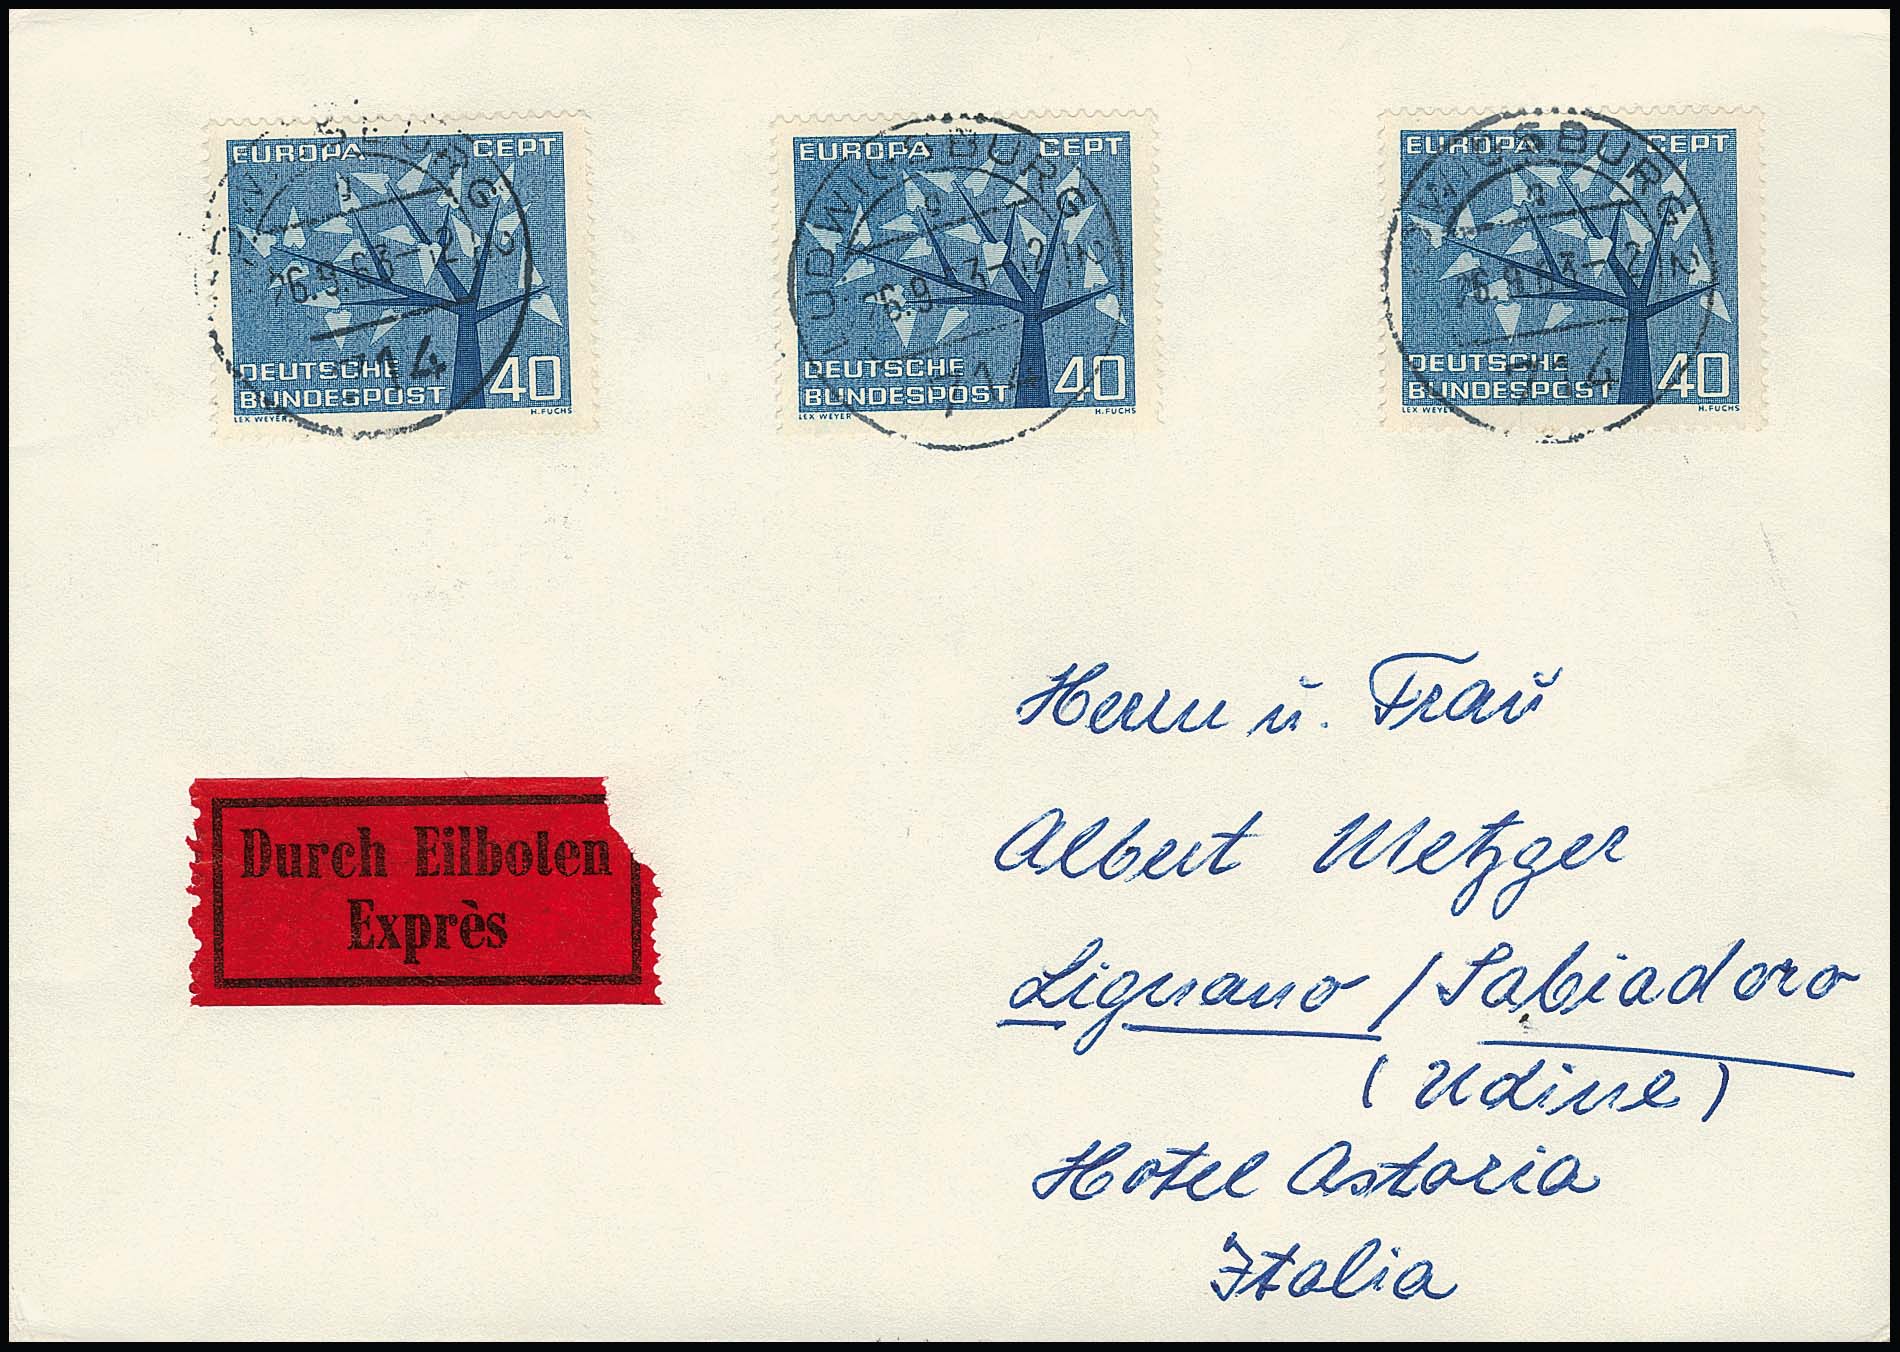 EUROPA CEPT
DEUTSCHE
BUNDESPOST 40
LEX WEYER H.FUCHS
26.9.63-12
14
EUROPA CEPT
DEUTSCHE
BUNDESPOST 40
LEX WEYER H.FUCHS
LUDWIGSBURG 2
g
EUROPA CEPT
DEUTSCHE
BUNDESPOST 40
LEX WEYER H.FUCHS
Herrn u. Frau
Albert Metzger
Lignano / Sabiadoro
(Udine)
Hotel Astoria
Italia
Durch Eilboten
Exprès